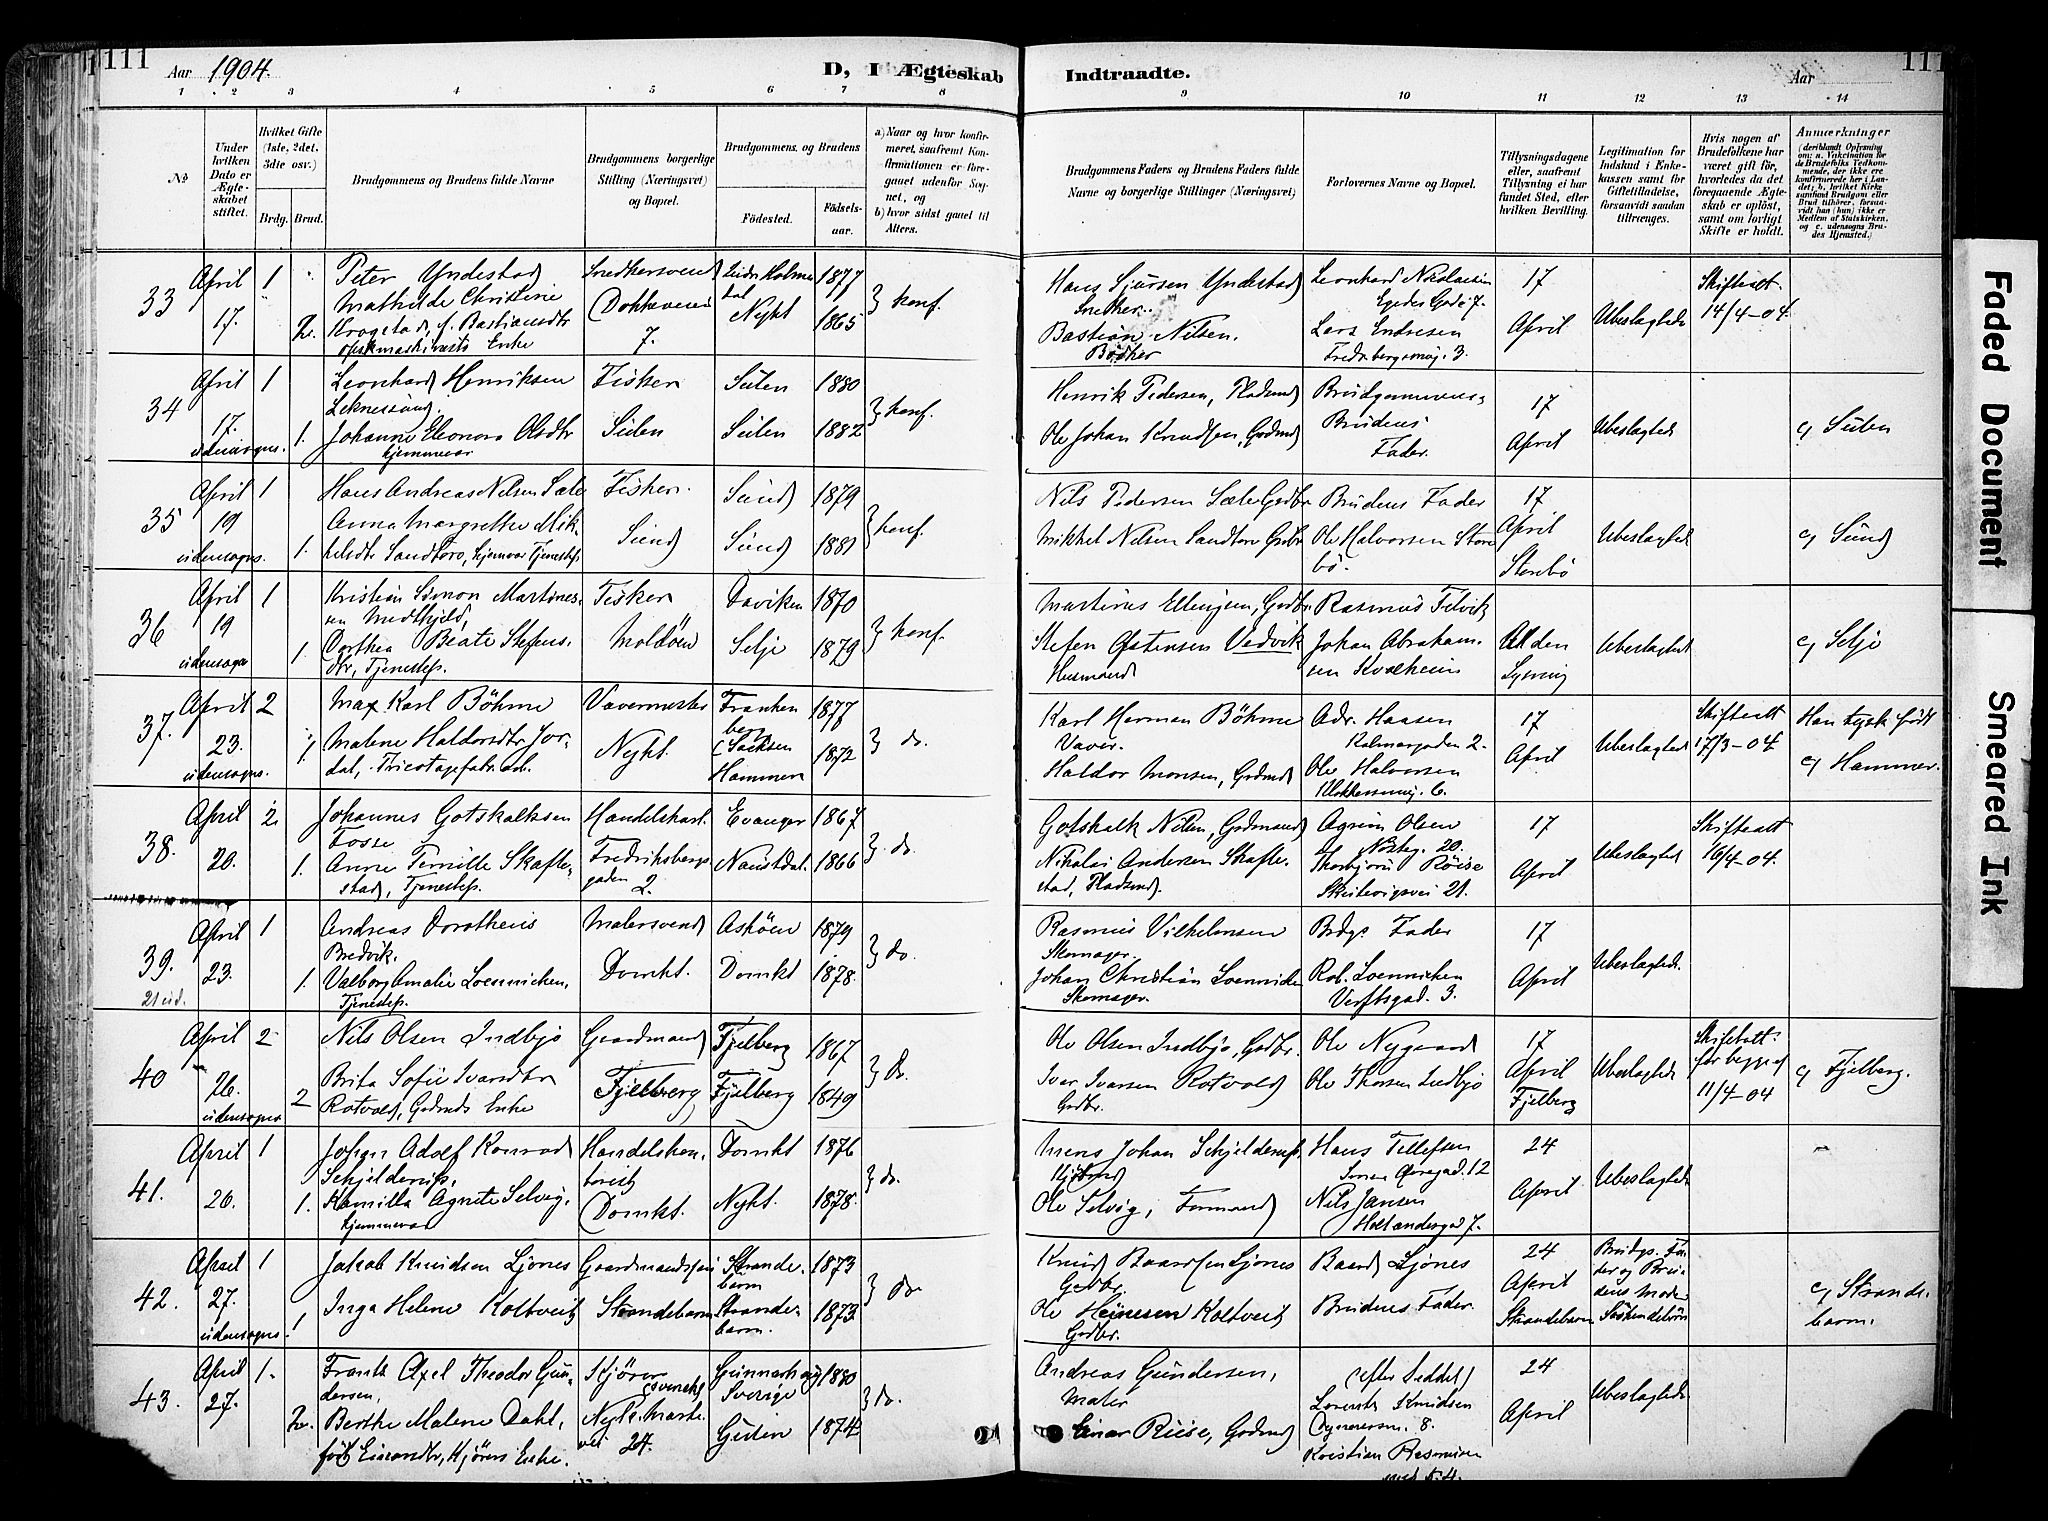 111
Aar 1904.
D, I Ægteskab
Indtraadte.
Aar
111
1 2 3 4 5 6 7 8 9 10 11 12 13 14
No
Under hvilken Dato er Ægteskabet stiftet.
Hvilket Gifte (1ste, 2det, 3die osv.)
Brdg. Brud.
Brudgommens og Brudens fulde Navne
Brudgommens borgerlige Stilling (Næringsvei) og Bopæl.
Brudgommens og Brudens
Fødested.
Fødselsaar.
a) Naar og hvor konfirmeret, saafremt Konfirmationen er foregaaet udenfor Sognet, og
b) hvor sidst gaaet til Alters.
Brudgommens Faders og Brudens Faders fulde Navne og borgerlige Stillinger (Næringsvei)
Forlovernes Navne og Bopæl.
Tillysningsdagene eller, saafremt Tillysning ei har fundet Sted, efter hvilken Bevilling.
Legitimation for Indskud i Enkekassen samt for Giftetilladelse, forsaavidt saadan tiltrænges.
Hvis nogen af Brudefolkene har været gift før, hvorledes da det foregaaende Ægteskab er opløst, samt om lovligt Skifte er holdt.
Anmærkninger
(deriblandt Oplysning om: a. Vakcination for de Brudefolks Vedkommende, der ikke ere konfirmerede her i Landet; b. hvilket Kirkesamfund Brudgom eller Brud tilhører, forsaavidt han (hun) ikke er Medlem af Statskirken, og c. udensogns Brudes Hjemsted.)
33
April 17.
1
2.
Peter Yndestad
Mathilde Christine
Krogstad, f. Bastiansdtr
Enke
Snedkersvend
Dokkeveien
7.
Nykt
1877
1865
konf.
Hans Sjursen Yndestad
Snedker.
Bastian Nilsen.
Bødker
Leonhard Nikolaisen
Egedes Gade 7.
Lars Endresen
Fredr.bergsmug. 3.
17 April
Ubeslægtede
Skifteatt.
14/4-04.
34
April 17.
udensogns.
1
1.
Leonhard Henriksen
Leknessund.
Johanne Eleonora Olsdtr
hjemmevær
Fisker
Sulen
Sulen
Sulen
1880
1882
konf.
Henrik Pedersen, Pladsmd
Ole Johan Knudsen, Gdmd
Brudgommens-
Brudens
Fader.
17 April
Ubeslægtede
c) Sulen
35
April 19
udensogns.
1
1.
Hans Andreas Nilsen Sæle
Anna Margrethe Mik-
kelsdtr Sandtorv, hjemmev Tjenestep.
Fisker
Sund
Sund
Sund
1879
1881
konf.
Nils Pedersen Sæle Gdbr
Mikkel Nilsen Sandtorv Gdbr
Brudens Fader
Ole Halvorsen Store
bø.
17
April
Storebø
Ubeslægtet
c) Sund
36
April 19
udensogns
1
1.
Kristian Simon Martines-
sen Midthjeld,
Dorthea Beate Stefens-
dtr, Tjenestep.
Fisker
Moldøen
Daviken
Selje
1870
1879
konf.
Martinus Ellingsen, Gdbr.
Stefen Ofstensen Vedvik
Husmand
Rasmus Tilvik
Johan Abraham-
sen Kvalheim
Uden
Lysning
Ubeslægtet
c) Selje
37.
April 23.
udensogns.
2
1.
Max Karl Böhme
Malene Haldorsdtr Jor-
dal, Tricotagefabr. arb.
Vævermester
Nykt.
Franken
berg
(Sacksen
Hammer
1877
1872
do.
Karl Herman Böhme
Væver.
Haldor Monsen, Grdmd
Adr. Haasen
Kalmargaden 2.
Ole Halvorsen
Klokkersmug. 6.
17 April
Ubeslægtede
Skifteatt
17/3-04.
Han tysk født
c) Hammer.
38.
April 20.
2.
1.
Johannes Gotskalksen
Fosse
Anne Pernille Skafle-
stad, Tjenestep.
Handelskarl.
Fredriksbergs
gaden
2.
Evanger
Naustdal.
1867
1866
do.
Gotskalk Nilsen, Grdmand
Nikolai Andersen Skafle-
stad, Pladsmd.
Agrim Olsen
Nosteg. 20.
Thorbjørn Røise
Skuteviksvei 21.
17 April
Ubeslægtet
Skifteatt
16/4-04.
39.
21 ud.
April 23.
1
1.
Andreas Dorotheus
Bredvik.
Valborg Amalie Loennichen,
Tjenestep.
Malersvend
Domkt.
Askøen
Domkt
1879
1878.
do.
Rasmus Vilhelmsen
Skomager.
Johan Christian Loennichen
Skomager.
Brdgs Fader
Rob. Loennichen
Verftsgad. 3.
17 April
Ubeslægtede.
40
April 26.
udensogns
2
2
Nils Olsen Indbjo
Brita Sofie Ivarsdtr
Rotvold, Gdmds Enke
Gaardmand
Fjelberg
Fjelberg
Fjelberg
1867
1849
Do.
Ole Olsen Indbjo, Gdbr.
Iver Ivarsen Rotvold
Gdbr.
Ole Nygaard
Ole Thorsen Indbjo
17
April
Fjelberg
Ubeslægtede
Skifteatt.
for begge af
11/4-04
c) Fjelberg.
41.
April 26.
1
1.
Johan Adolf Konrad
Schjelderup,
Kamilla Agnete Selvig,
hjemmevær
Handelskon-
torist
Domkt.
Domkt
Nykt.
1876
1878.
do.
Mens Johan Schjelderup,
Kjøbmd
Ole Selvig, Formand
Hans Tellefsen
12
Nils Jansen
Hollændergad 7.
24
April
Ubeslægtede
42.
April 27.
udensogns.
1
1
Jakob Knudsen Ljones
Inga Helene Koltveit
Gaardmandssøn
Strandebarm
Strande-
barm
Strande-
barm.
1873
1873
Do.
Knud Baardsen Ljones
Gdbr.
Ole Heinesen Koltveit
Gdbr.
Baard Ljønes
Brudens Fader.
24
April
Strandebarm
Brudgs. Fa-
der og Bru-
dens Moder
Søskendebørn
c) Strande-
barm.
43.
April 27.
1.
2.
Frants Axel Theodor Gun-
dersen,
Berthe Malene Dahl,
født Einarsdtr, Kjørers Enke.
Kjører
(svensk)
Nykt.
24.
Gunnarskog
Sverige
Gulen
1880
1874
do.
Andreas Gundersen,
Maler
Einar Riise, Gdmd
(efter Seddel)
Lorents Knudsen
8.
Kristian Rasmussen
24
April
Ubeslægtede
Faded Document
Smeared Ink